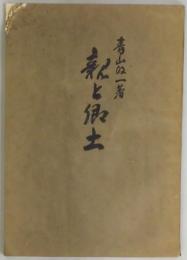 青山政一著
親と郷土